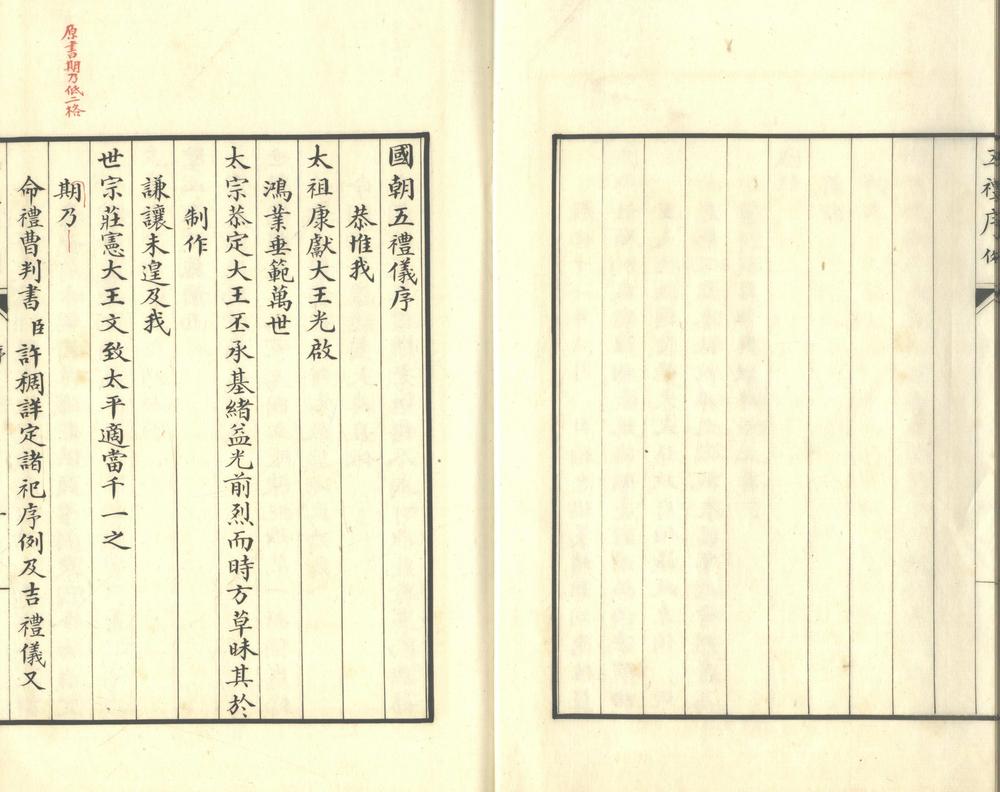 五禮序例
國朝五禮儀序
恭惟我
太祖康獻大王光啟
鴻業垂範萬世
太宗恭定大王丕承基緒益光前烈而時方草昧其於
制作
謙讓未遑及我
世宗莊憲大王文致太平適當千一之
期乃
命禮曹判書臣許稠詳定諸祀序例及吉禮儀又
原書期乃低二格
序